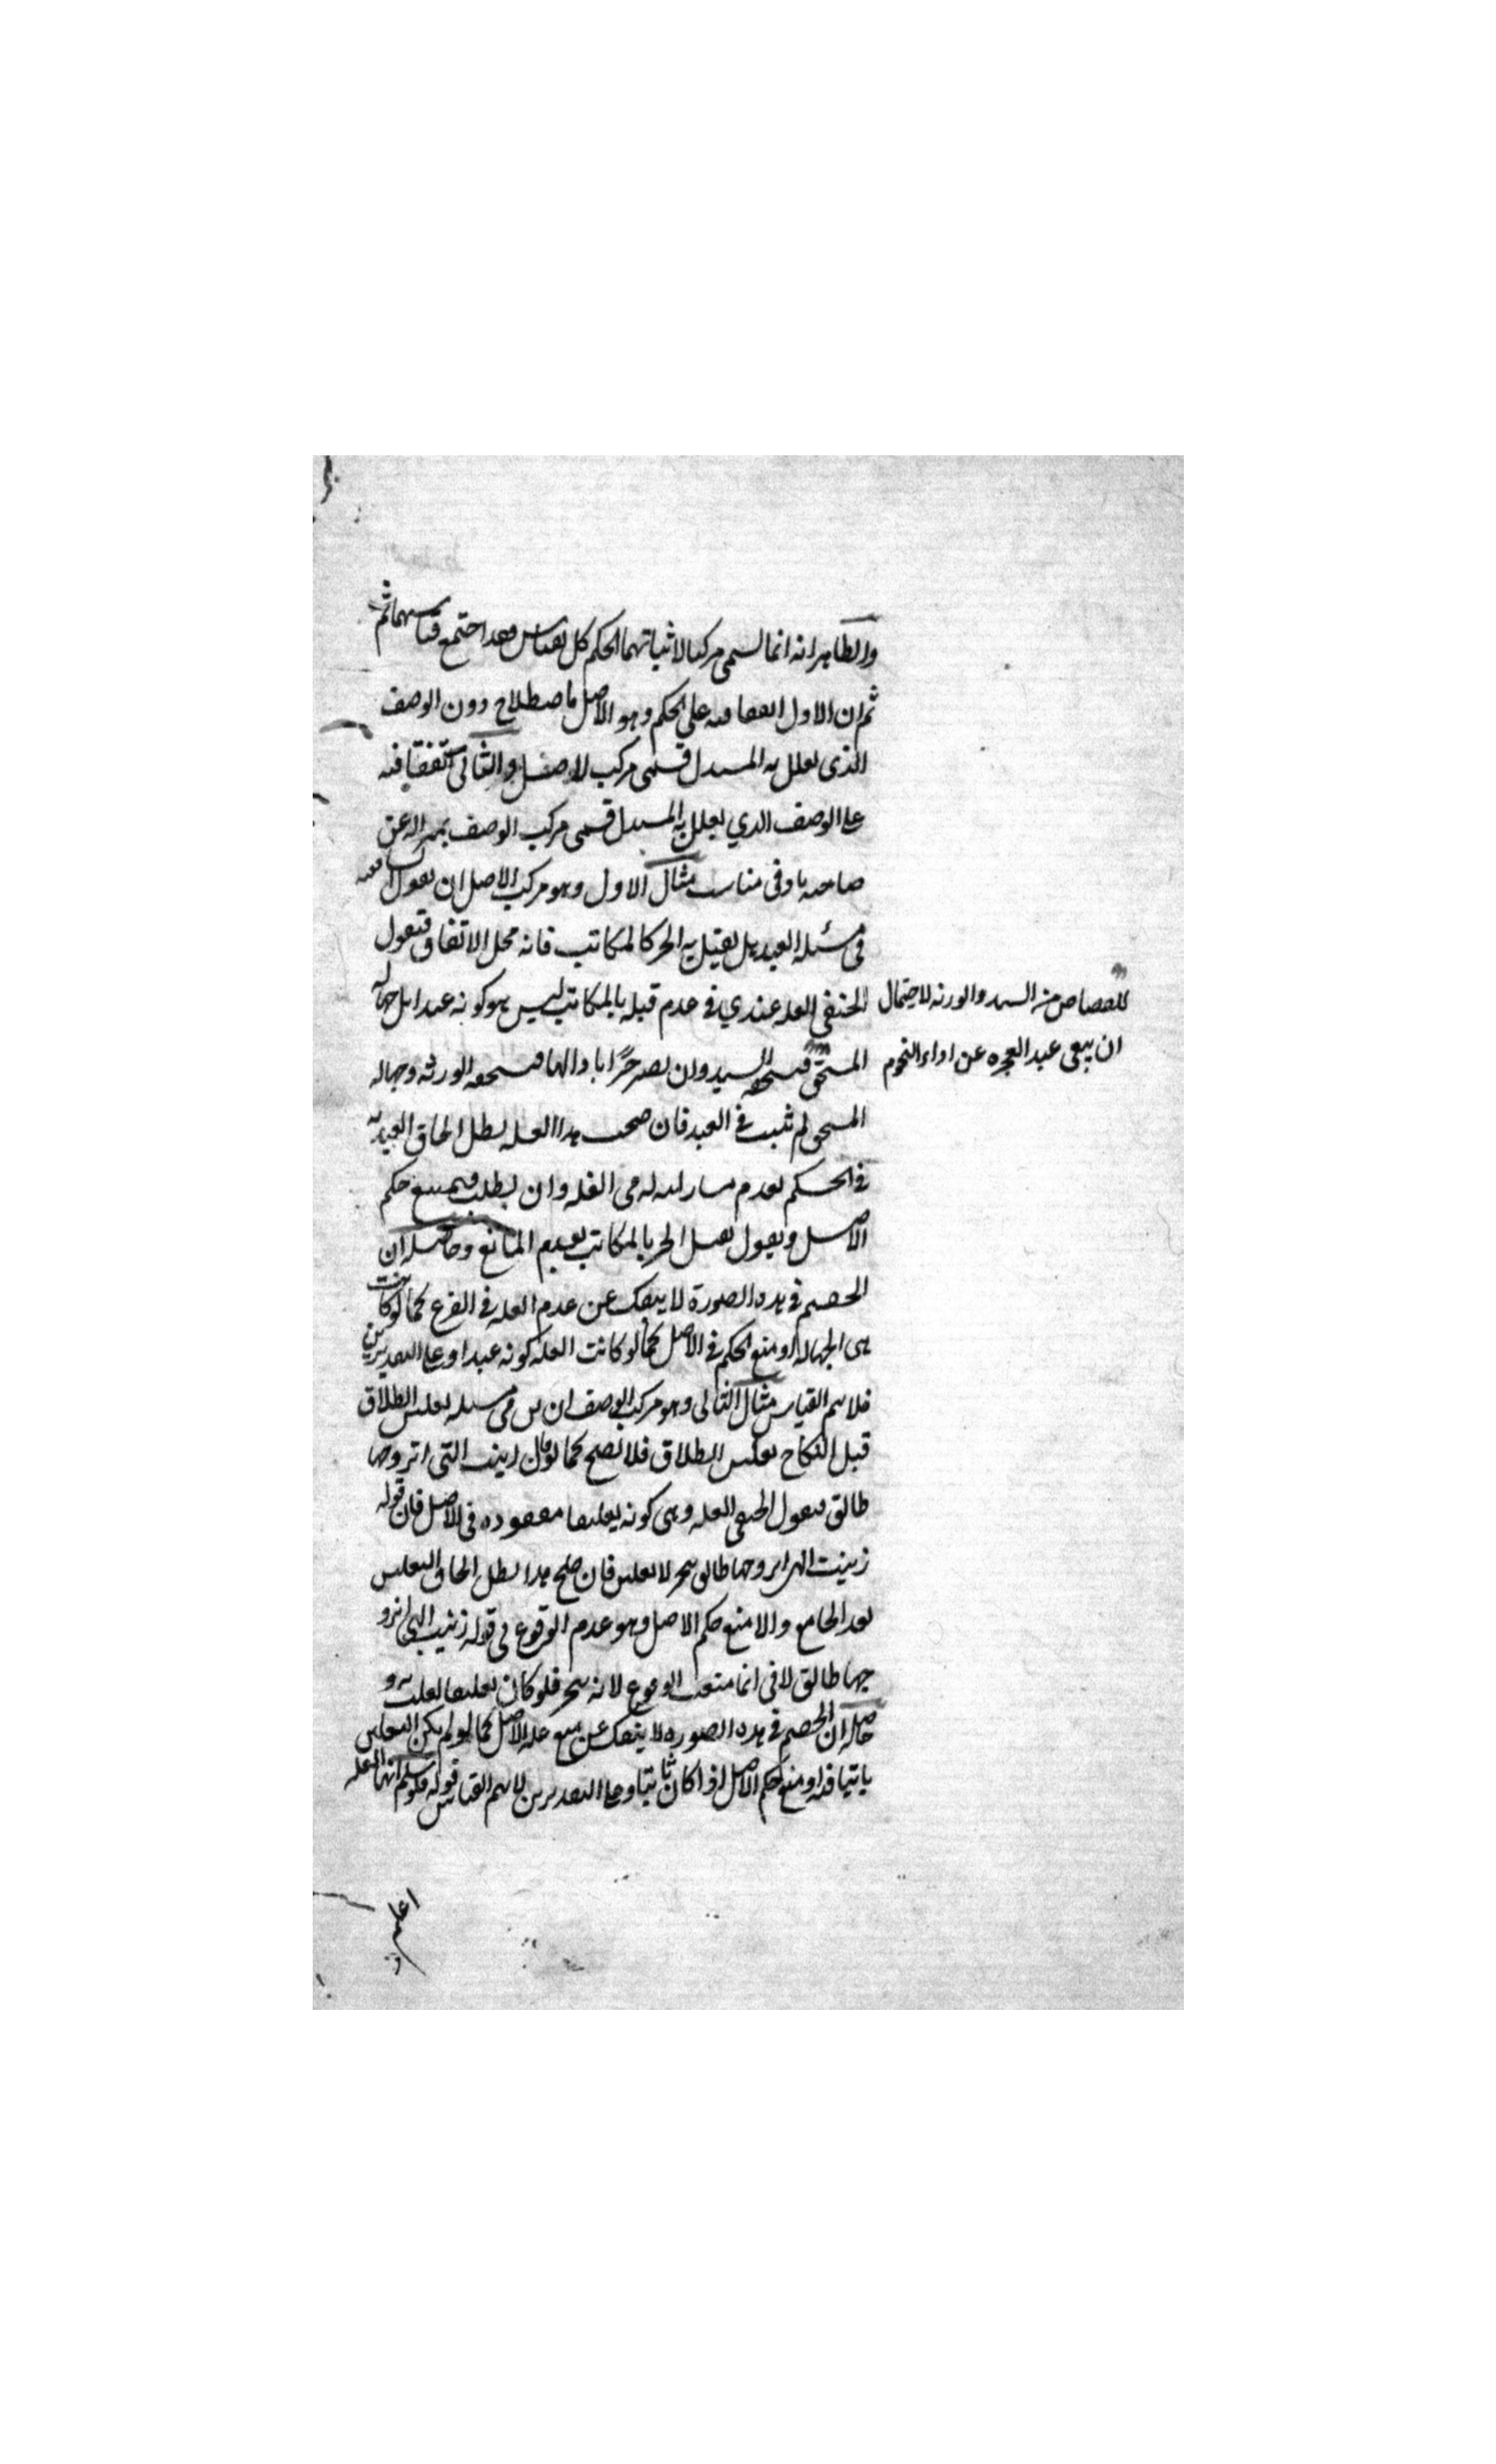 والظاهر انه انما لسمى مركبا لاثباتهما الحكم كل بقياس فقد اجتمع قياسهما ثم
ثم ان الاول اتفقا فيه على الحكم وهو الاصل باصطلاح دون الوصف
الذى يعلل به المستدل فسمى مركب الاصل والثانى اتفقا فيه
على الوصف الذي يعلل به المستدل فسمى مركب الوصف تمييزا له عن
صاحبه بادنى مناسبة مثال الاول وهو مركب الاصل ان يقول الشافعية
فى مسئلة العبد هل يقتل به الحر كالمكاتب فانه محل الاتفاق فيقول
الحنفى العله عندي فى عدم قتله بالمكاتب ليس هو كونه عبدا بل جهاله
المستحق السيد وان يصير حرا باداها فيستحقه الورثه وجهاله
للقصاص من السيد والورثه لاحتمال
ان يبقى عبد العجزه عن اداء النجوم
المستحق لم تثبت فى العبد فان صحت هذا العله بطل الحاق العبد به
فى الحكم لعدم مشاركته له فى العله وان بطلت فيمنع حكم
الاصل ويقول يقتل الحر بالمكاتب لعدم المانع وحاصله ان
الخصم فى هذه الصورة لا ينفك عن عدم العله فى الفرع كما لو كانت
هى الجهاله او منع الحكم فى الاصل كما لو كانت العله كونه عبدا وعلى التقديرين
فلا يتم القياس مثال الثانى وهو مركب الوصف ان فى مسئله تعليق الطلاق
قبل النكاح تعليق الطلاق فلا يصح كما لو قال زينب التى اتزوجها
طالق فيقول الحنفى العله وهى كونه تعليقا مفقوده فى الاصل فان قوله
زينب التى اتزوجها طالق تنجيز لا تعليق فان صح هذا بطل الحاق التعليق
لعدم الجامع والا منع حكم الاصل وهو عدم الوقوع فى قوله زينب التى اتزو
جها طالق لانى انما منعت الوقوع لانه تنجيز فلو كان تعليقا لقلت به و
حاصله ان الخصم فى هذه الصوره لا ينفك عن منع عله الاصل كما لو لم يكن التعليق
ثابتا فيه او منع حكم الاصل اذا كان ثابتا وعلى التقديرين لا يتم القياس قوله فلو سلم انها العله
اعلم